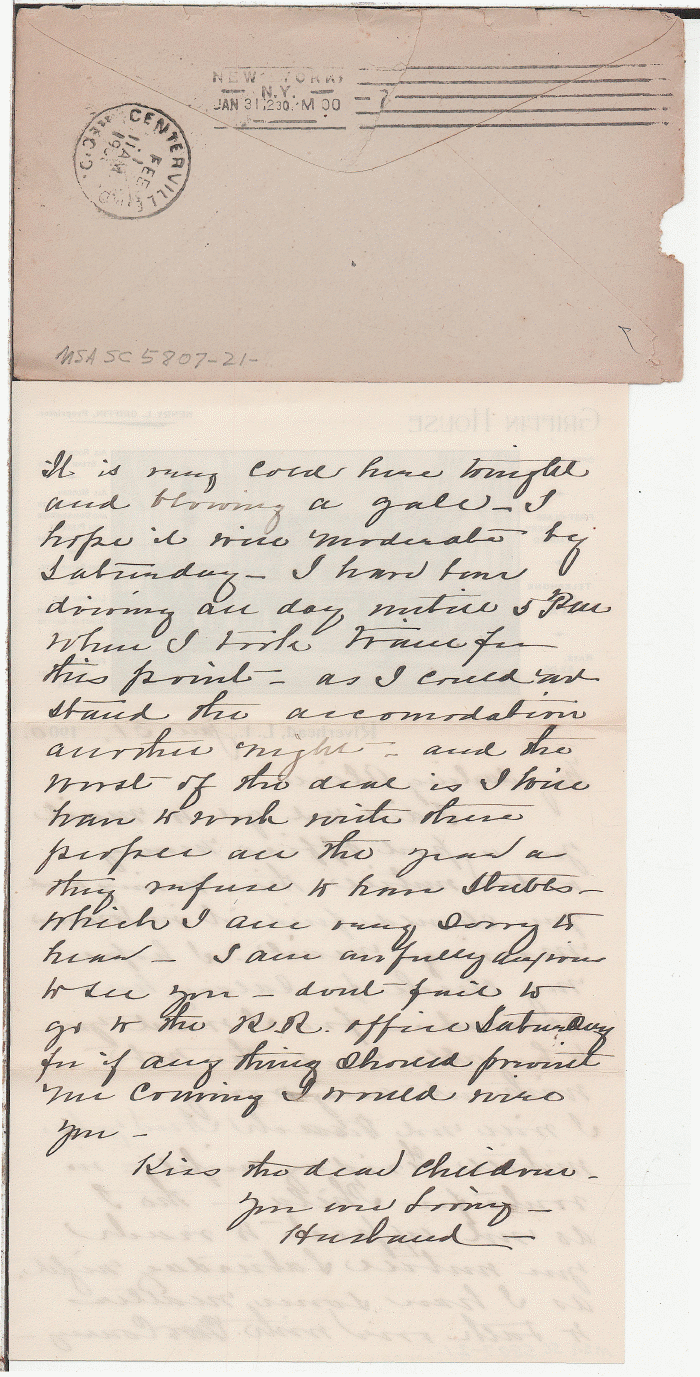 NEW YORK,
N.Y.
JAN 31 1230 PM 00
CENTERVILLE
FEB
11 AM
MSA SC 5807-21-
It is very cold here tonight
and blowing a gale - I
hope it will moderate by
Saturday - I have been
driving all day until 5 PM
when I took train for
this point - as I could not
stand the accomodation
another night - and the
worst of the deal is I will
have to work with these
people all the year as
they refuse to have Stubbs -
which I am very sorry to
hear - I am awfully anxious
to see you - dont fail to
go to the R.R. office Saturday
for if any thing should prevent
me coming I would wire
you -
Kiss the dear children -
Your ever loving -
Husband -
GRIFFIN HOUSE
Riverhead, L. I.,